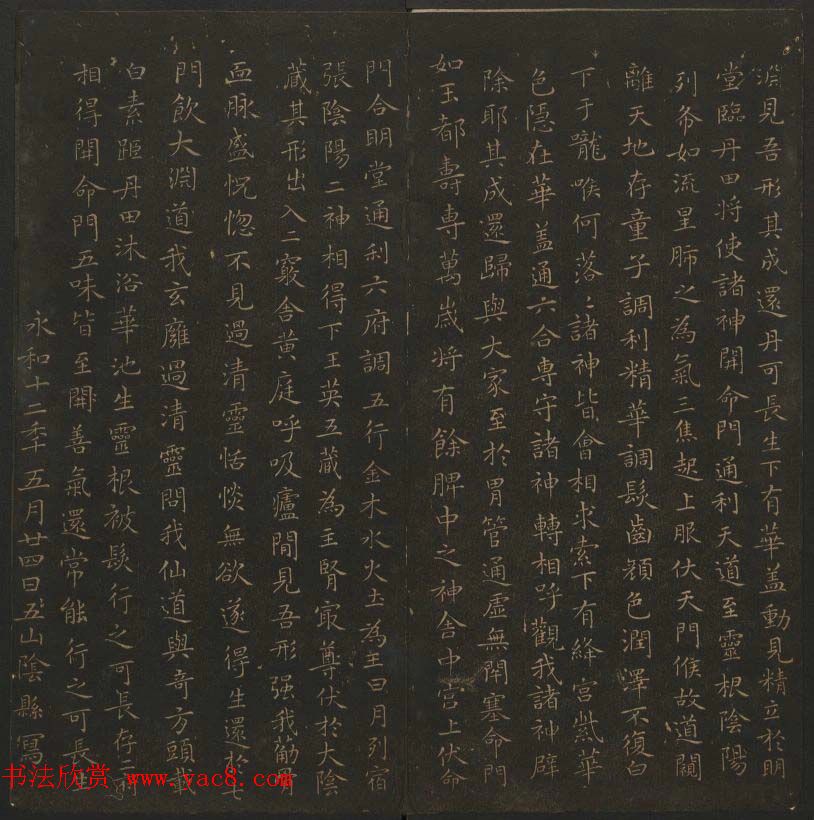 淵見吾形其成還丹可長生下有華盖動見精立於明
堂臨丹田將使諸神開命門通利天道至靈根陰陽
列布如流星肺之為氣三焦起上服伏天門候故道闚
離天地存童子調利精華調髮齒顔色潤澤不復白
下于嚨喉何落〻諸神皆會相求索下有絳宮紫華
色隱在華盖通六合專守諸神轉相呼觀我諸神辟
除耶其成還歸與大家至於胃管通虛無閉塞命門
如玉都壽專萬歲將有餘脾中之神舍中宮上伏命
門合明堂通利六府調五行金木水火土為王日月列宿
張陰陽二神相得下玉英五藏為主腎寂尊伏於大陰
藏其形出入二竅舍黄庭呼吸廬間見吾形强我筋骨
血脉盛恍惚不見過清靈恬惔無欲遂得生還於七
門飲大淵道我玄廱過清靈問我仙道與奇方頭載
白素距丹田沐浴華池生靈根被髮行之可長存二府
相得開命門五味皆至開善氣還常能行之可長生
永和十二年五月廿四日五山陰縣寫
书法欣赏 www.yac8.com